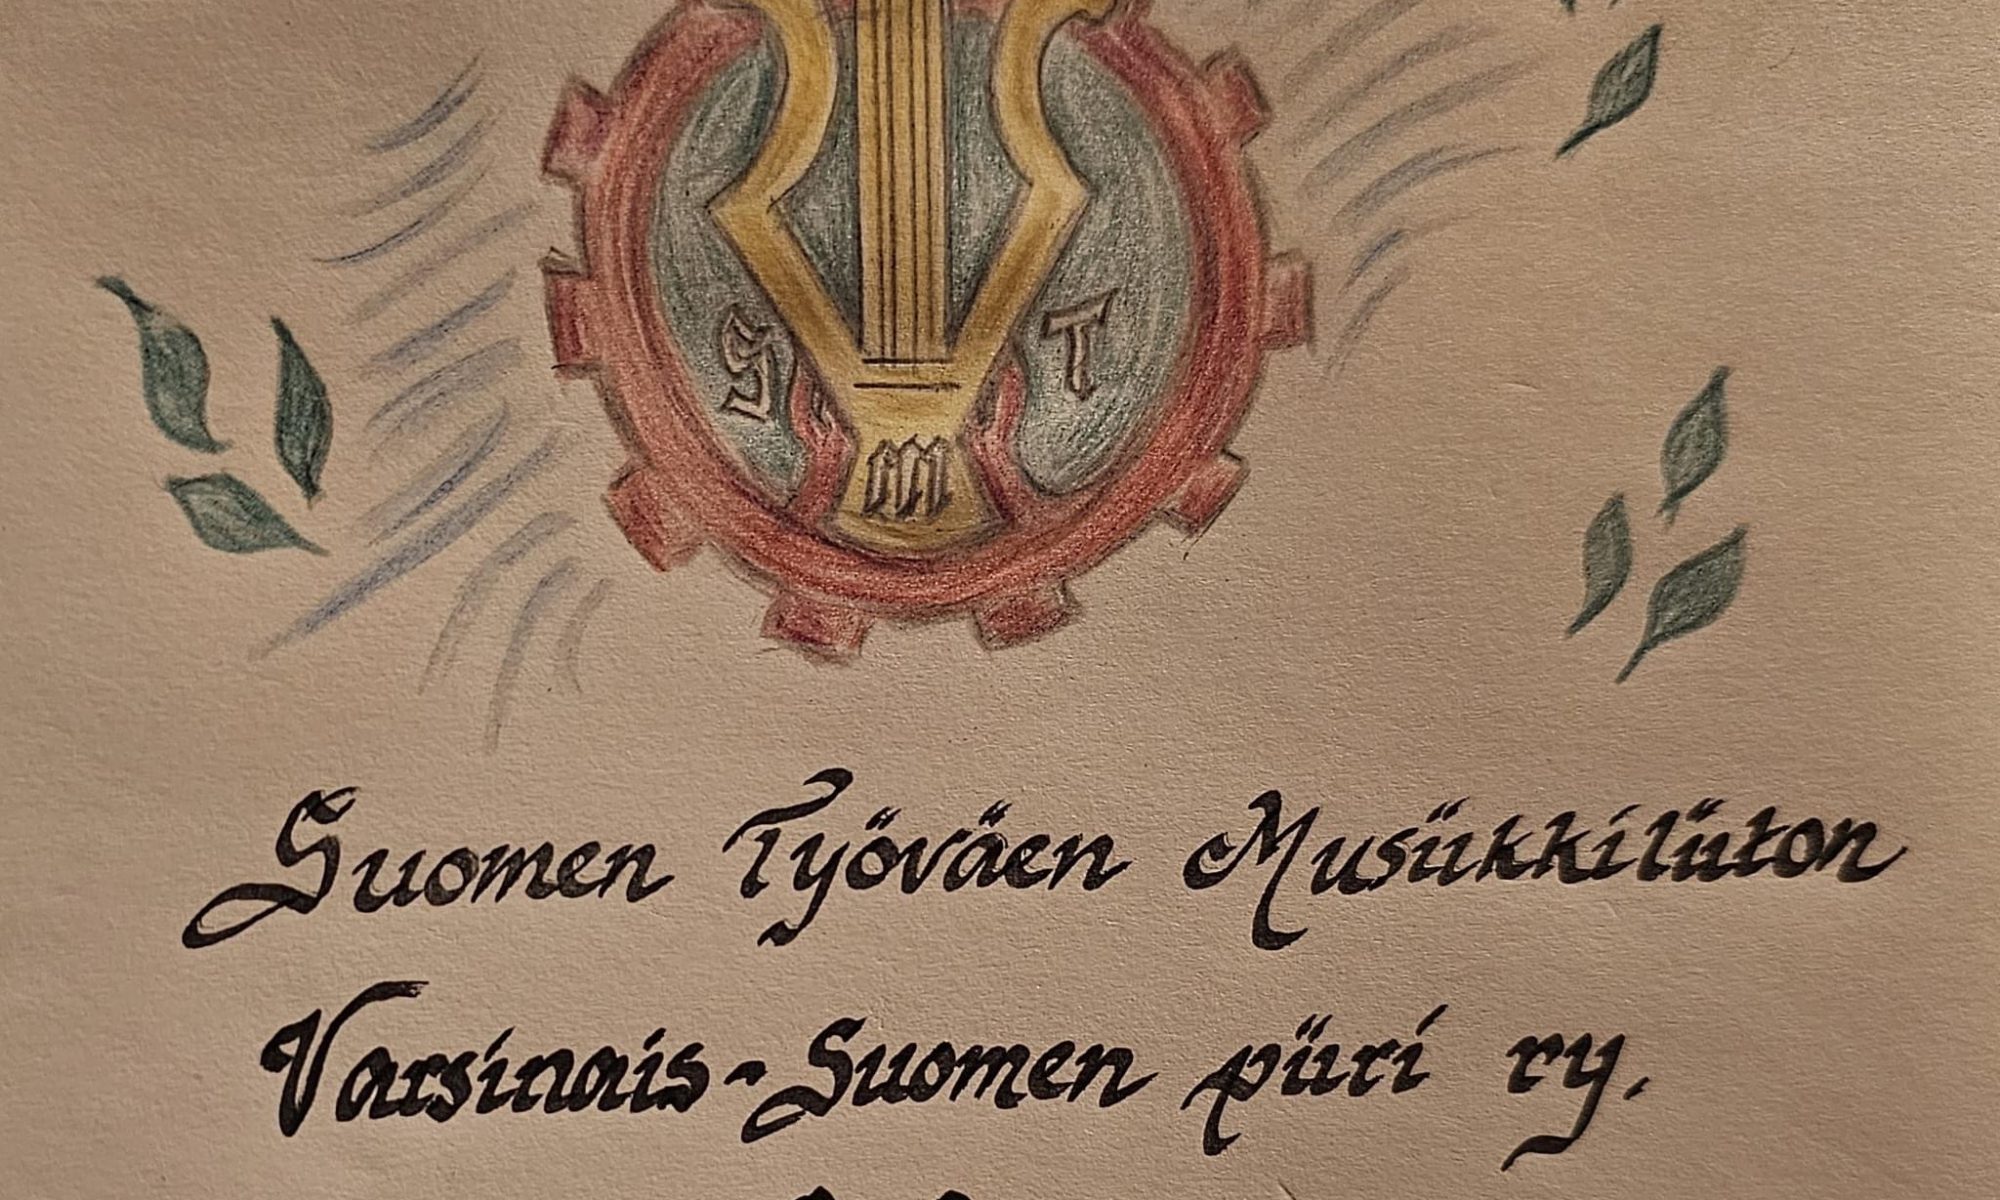 S T
M
Suomen Työväen Musiikkiliiton
Varsinais-Suomen piiri ry.